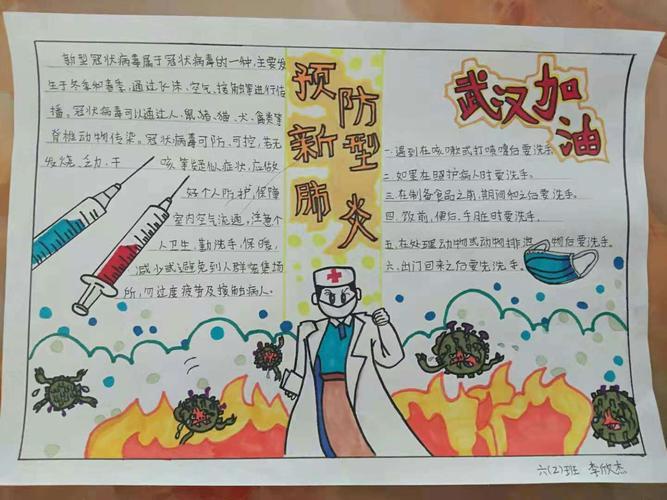 新型冠状病毒属于冠状病毒的一种,主要发
生于冬季和春季,通过飞沫、空气、接触等进行传
播。冠状病毒可以通过人、鼠、猪、猫、犬、禽类等
脊椎动物传染。冠状病毒可防、可控,若无
发烧、乏力、干咳等疑似症状,应做
好个人防护,保障
室内空气流通,注意个
人卫生,勤洗手,保暖,
减少或避免到人群密集场
所,勿过度疲劳及接触病人。
预防
新型
肺炎
武汉加油
一.遇到在咳嗽或打喷嚏后要洗手。
二.如果在照护病人时要洗手。
三.在制备食品之前,期间和之后要洗手。
四.饭前,便后,手脏时要洗手。
五.在处理动物或动物排泄物后要洗手。
六.出门回来之后要先洗手。
六(2)班 李欣杰